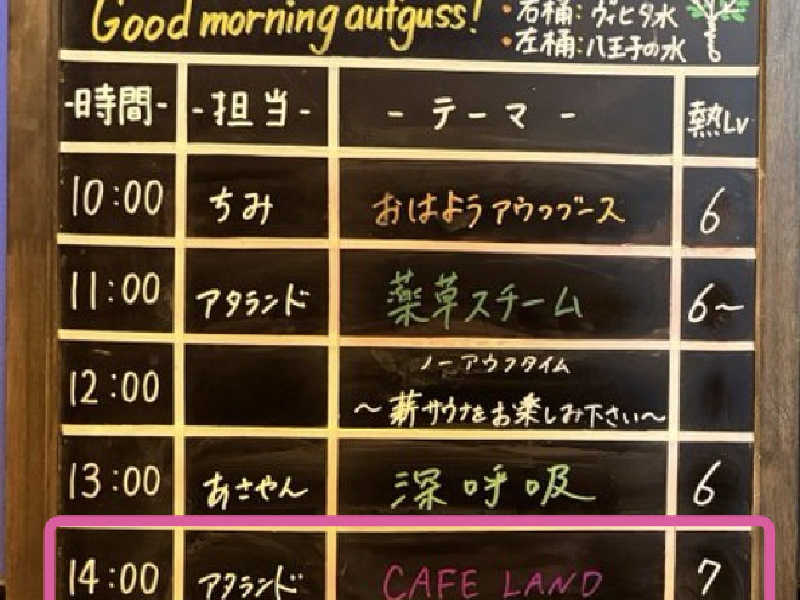 Good morning aufguss!
・右桶:ヴィヒタ水
・左桶:八王子の水
-時間- -担当- - テーマ - 熱Lv
10:00 ちみ おはようアウフグース 6
11:00 アタランド 薬草スチーム 6~
12:00 ノーアウフタイム
~薪サウナをお楽しみ下さい~
13:00 あさやん 深呼吸 6
14:00 アタランド CAFE LAND 7